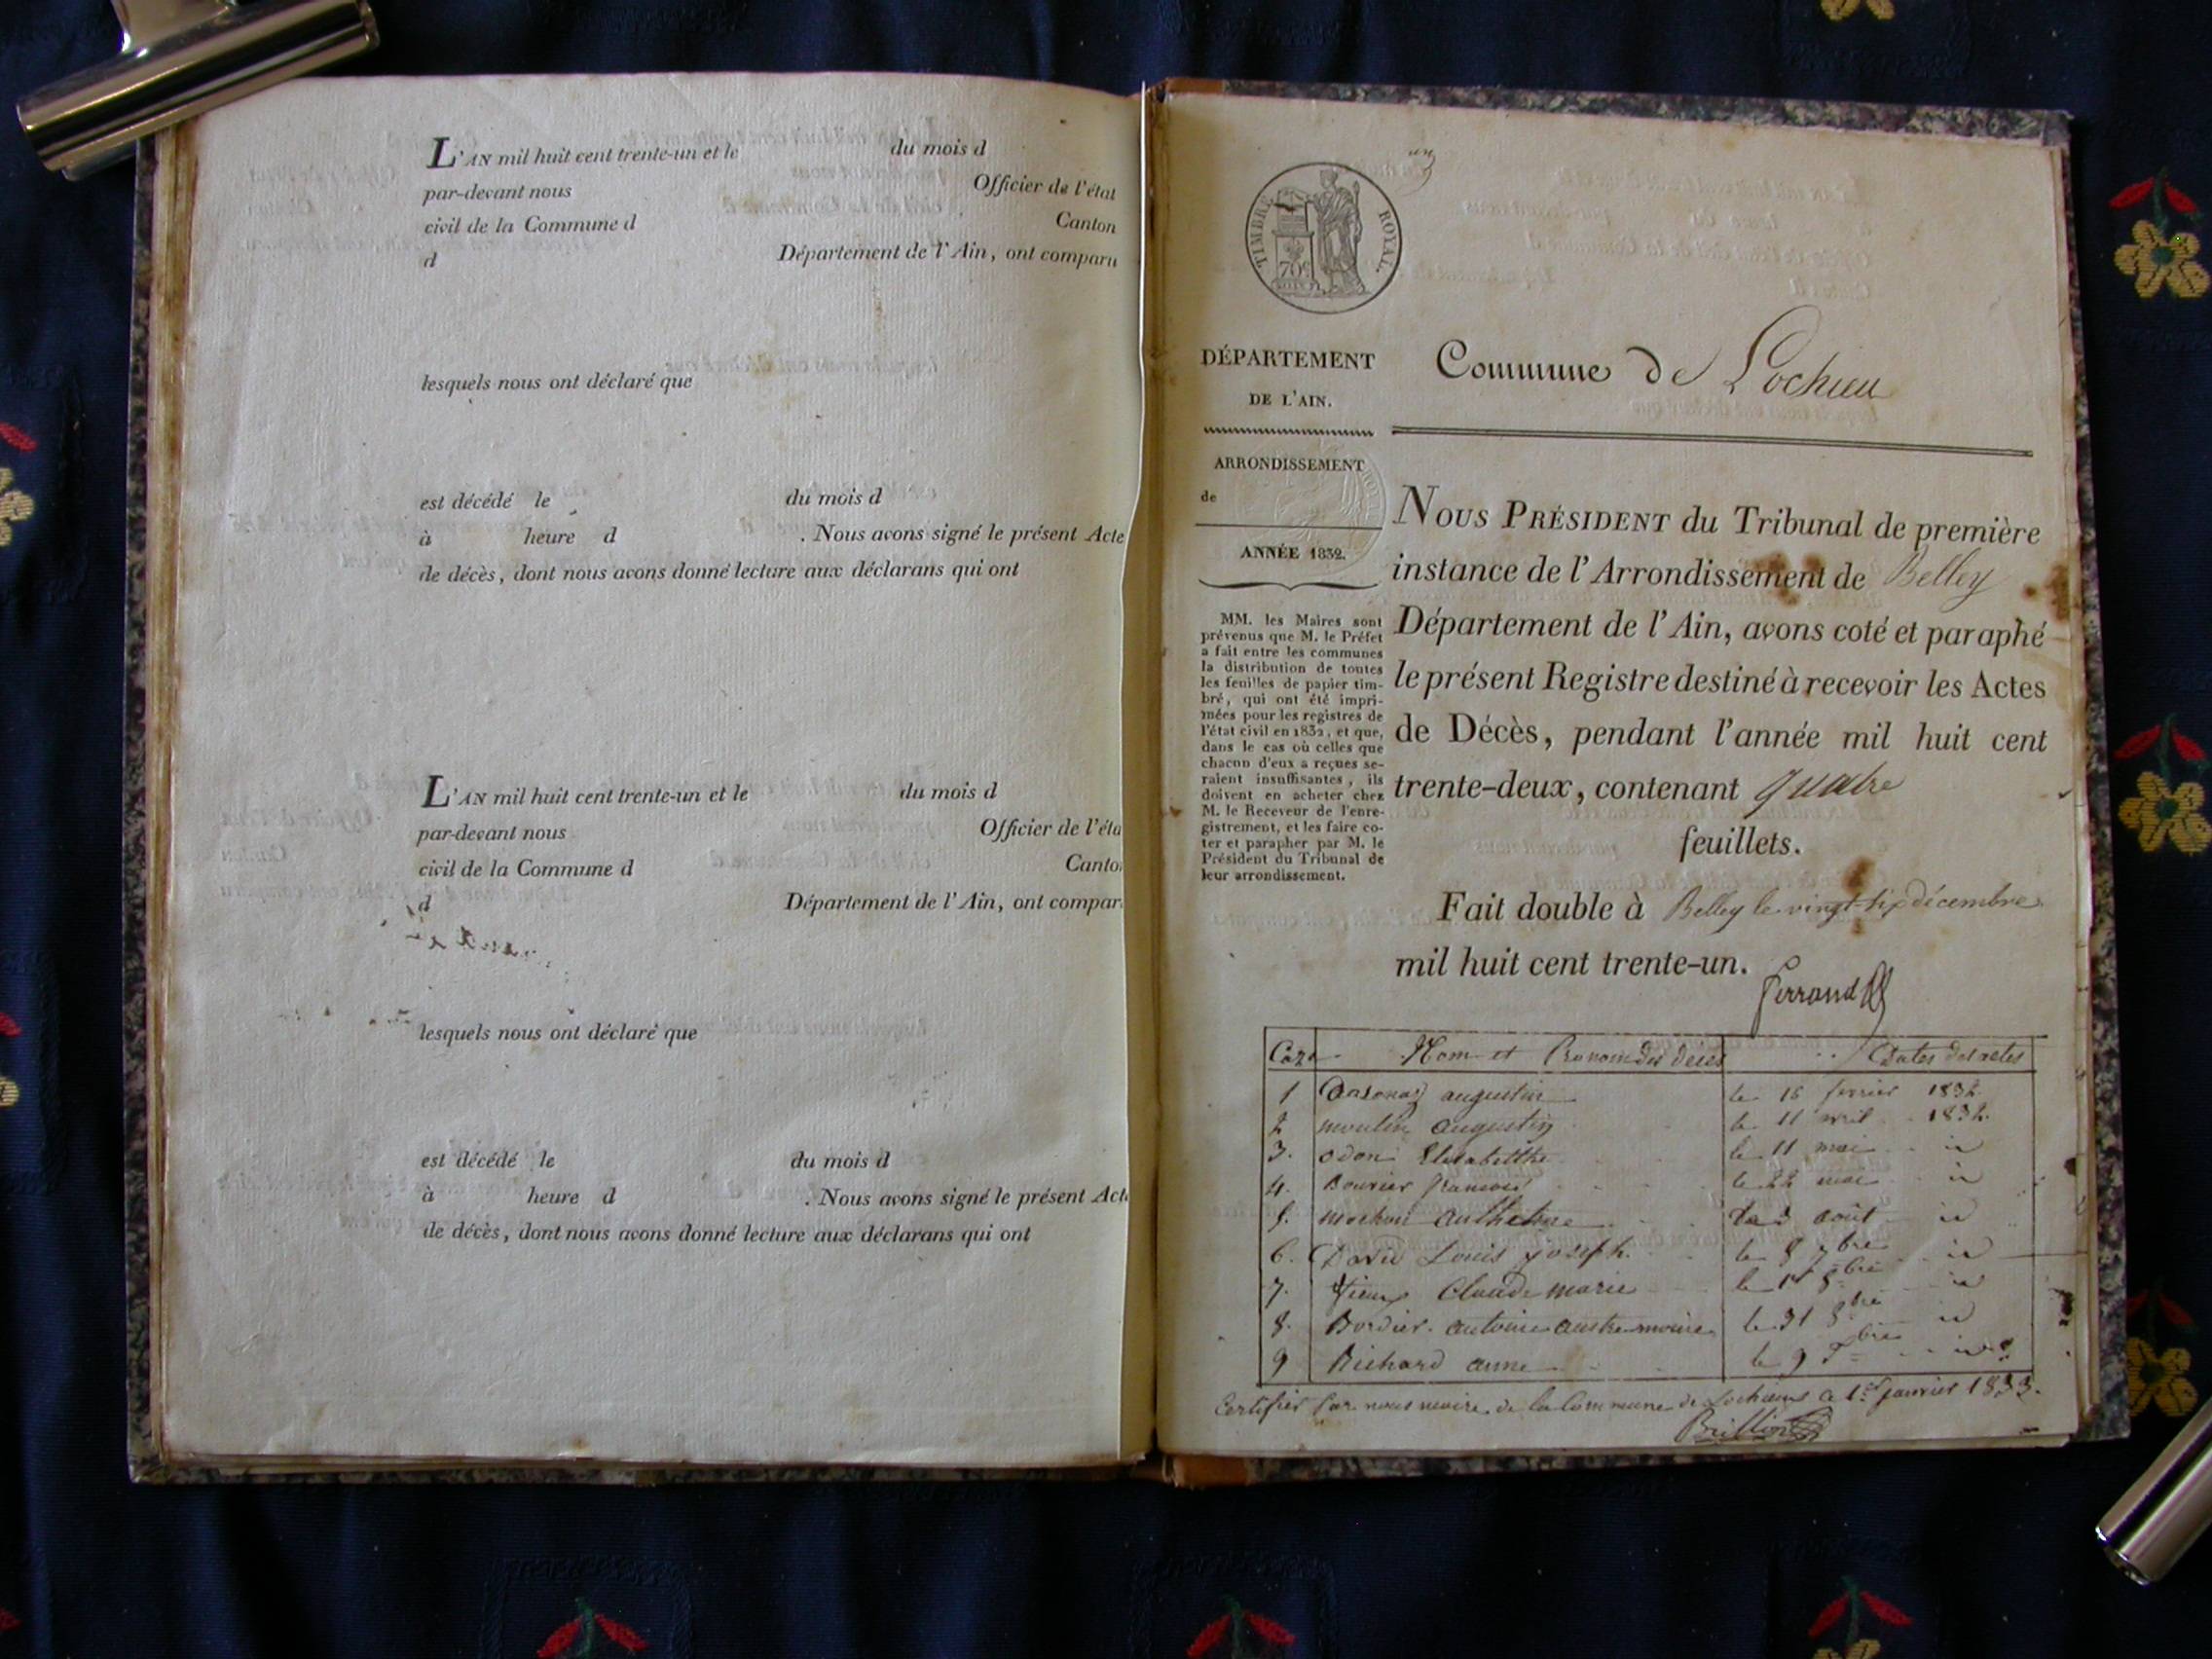 L'AN mil huit cent trente-un et le du mois d
par-devant nous Officier de l'état
civil de la Commune d Canton
d Département de l'Ain, ont comparu
lesquels nous ont déclaré que
est décédé le du mois d
à heure d . Nous avons signé le présent Acte
de décès, dont nous avons donné lecture aux déclarans qui ont
L'AN mil huit cent trente-un et le du mois d
par-devant nous Officier de l'éta
civil de la Commune d Canto
d Département de l'Ain, ont compar
lesquels nous ont déclaré que
est décédé le du mois d
à heure d . Nous avons signé le présent Act
de décès, dont nous avons donné lecture aux déclarans qui ont
un
TIMBRE ROYAL.
70c
DÉPARTEMENT
DE L'AIN.
Commune de Lochieu
ARRONDISSEMENT
de
ANNÉE 1832.
MM. les Maires sont
prévenus que M. le Préfet
a fait entre les communes
la distribution de toutes
les feuilles de papier tim-
bré, qui ont été impri-
mées pour les registres de
l'état civil en 1832, et que,
dans le cas où celles que
chacun d'eux a reçues se-
raient insuffisantes, ils
doivent en acheter chez
M. le Receveur de l'enre-
gistrement, et les faire co-
ter et parapher par M. le
Président du Tribunal de
leur arrondissement.
NOUS PRÉSIDENT du Tribunal de première
instance de l'Arrondissement de Belley
Département de l'Ain, avons coté et paraphé
le présent Registre destiné à recevoir les Actes
de Décès, pendant l'année mil huit cent
trente-deux, contenant quatre
feuillets.
Fait double à Belley le vingt-six décembre
mil huit cent trente-un.
Perrand
Nom et Prenom des décès Dates des actes
1 augustin le 16 fevrier 1832
2 moulin augustin le 11 avril 1832
3. odon Elisabetthe le 11 mai id
4. Bourier francois le 22 mai id
5. août id
6. David Louis joseph le 8 7bre id
7. Claude marie le 8bre id
8. Bordier antoine austremoine le 31 8bre id
9 Richard anne le 9 id
Certifier par nous maire de la Commune de Lochieu le 1er janvier 1833.
Brillion